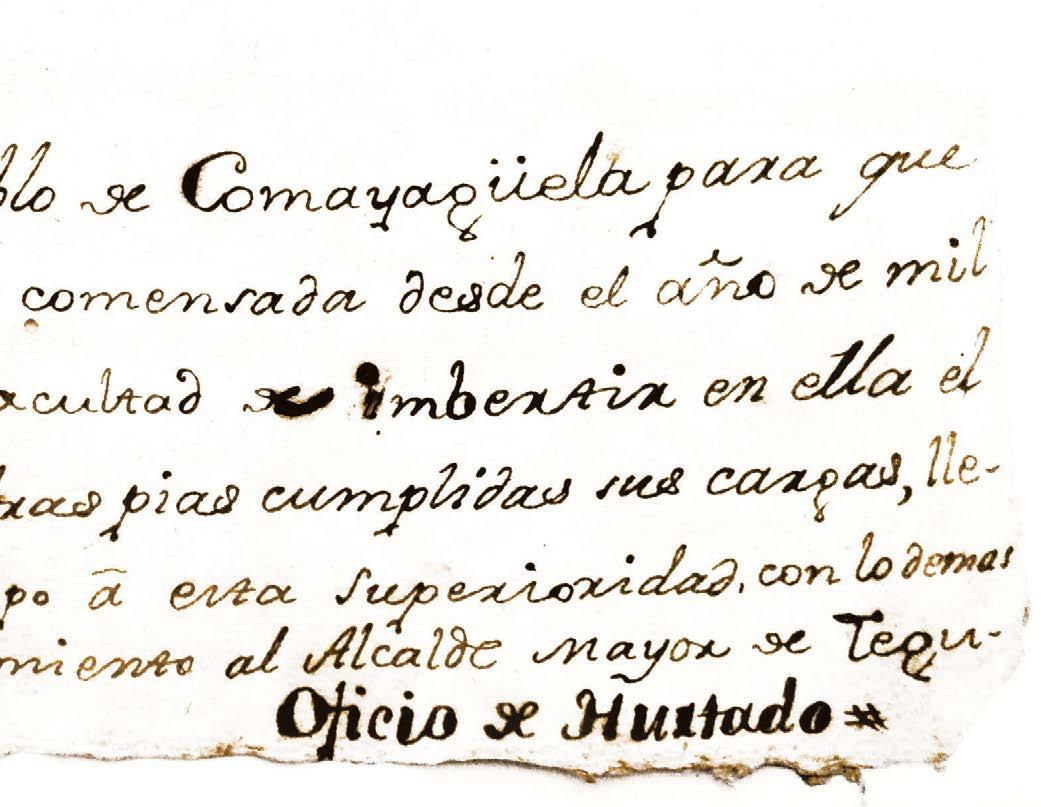 blo de Comayagüela para que
comensada desde el año de mil
acultad de imbertir en ella el
bras pias cumplidas sus cargas, lle-
po â esta Superioridad, con lo demas
miento al Alcalde mayor de Tegu-
Oficio de Hurtado